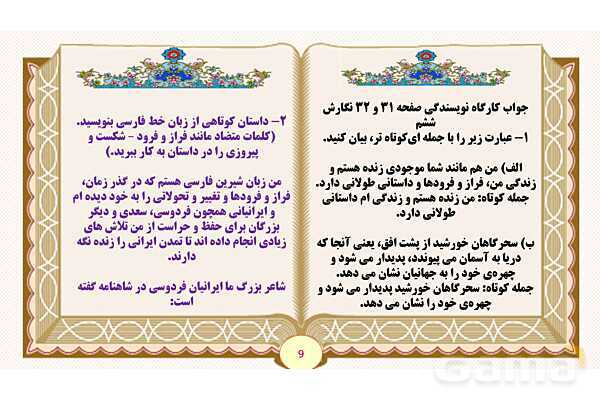 جواب کارگاه نویسندگی صفحه ۳۱ و ۳۲ نگارش
ششم
۱– عبارت زیر را با جمله ای‌کوتاه تر، بیان کنید.
الف) من هم مانند شما موجودی زنده هستم و
زندگی من، فراز و فرودها و داستانی طولانی دارد.
جمله کوتاه: من زنده هستم و زندگی ام داستانی
طولانی دارد.
ب) سحرگاهان خورشید از پشت افق، یعنی آنجا که
دریا به آسمان می پیوندد، پدیدار می شود و
چهره‌ی خود را به جهانیان نشان می دهد.
جمله کوتاه: سحرگاهان خورشید پدیدار می شود و
چهره‌ی خود را نشان می دهد.
۲– داستان کوتاهی از زبان خط فارسی بنویسید.
(کلمات متضاد مانند فراز و فرود – شکست و
پیروزی را در داستان به کار ببرید.)
من زبان شیرین فارسی هستم که در گذر زمان،
فراز و فرودها و تغییر و تحولاتی را به خود دیده ام
و ایرانیانی همچون فردوسی، سعدی و دیگر
بزرگان برای حفظ و حراست از من تلاش های
زیادی انجام داده اند تا تمدن ایرانی را زنده نگه
دارند.
شاعر بزرگ ما ایرانیان فردوسی در شاهنامه گفته
است:
9
Gama